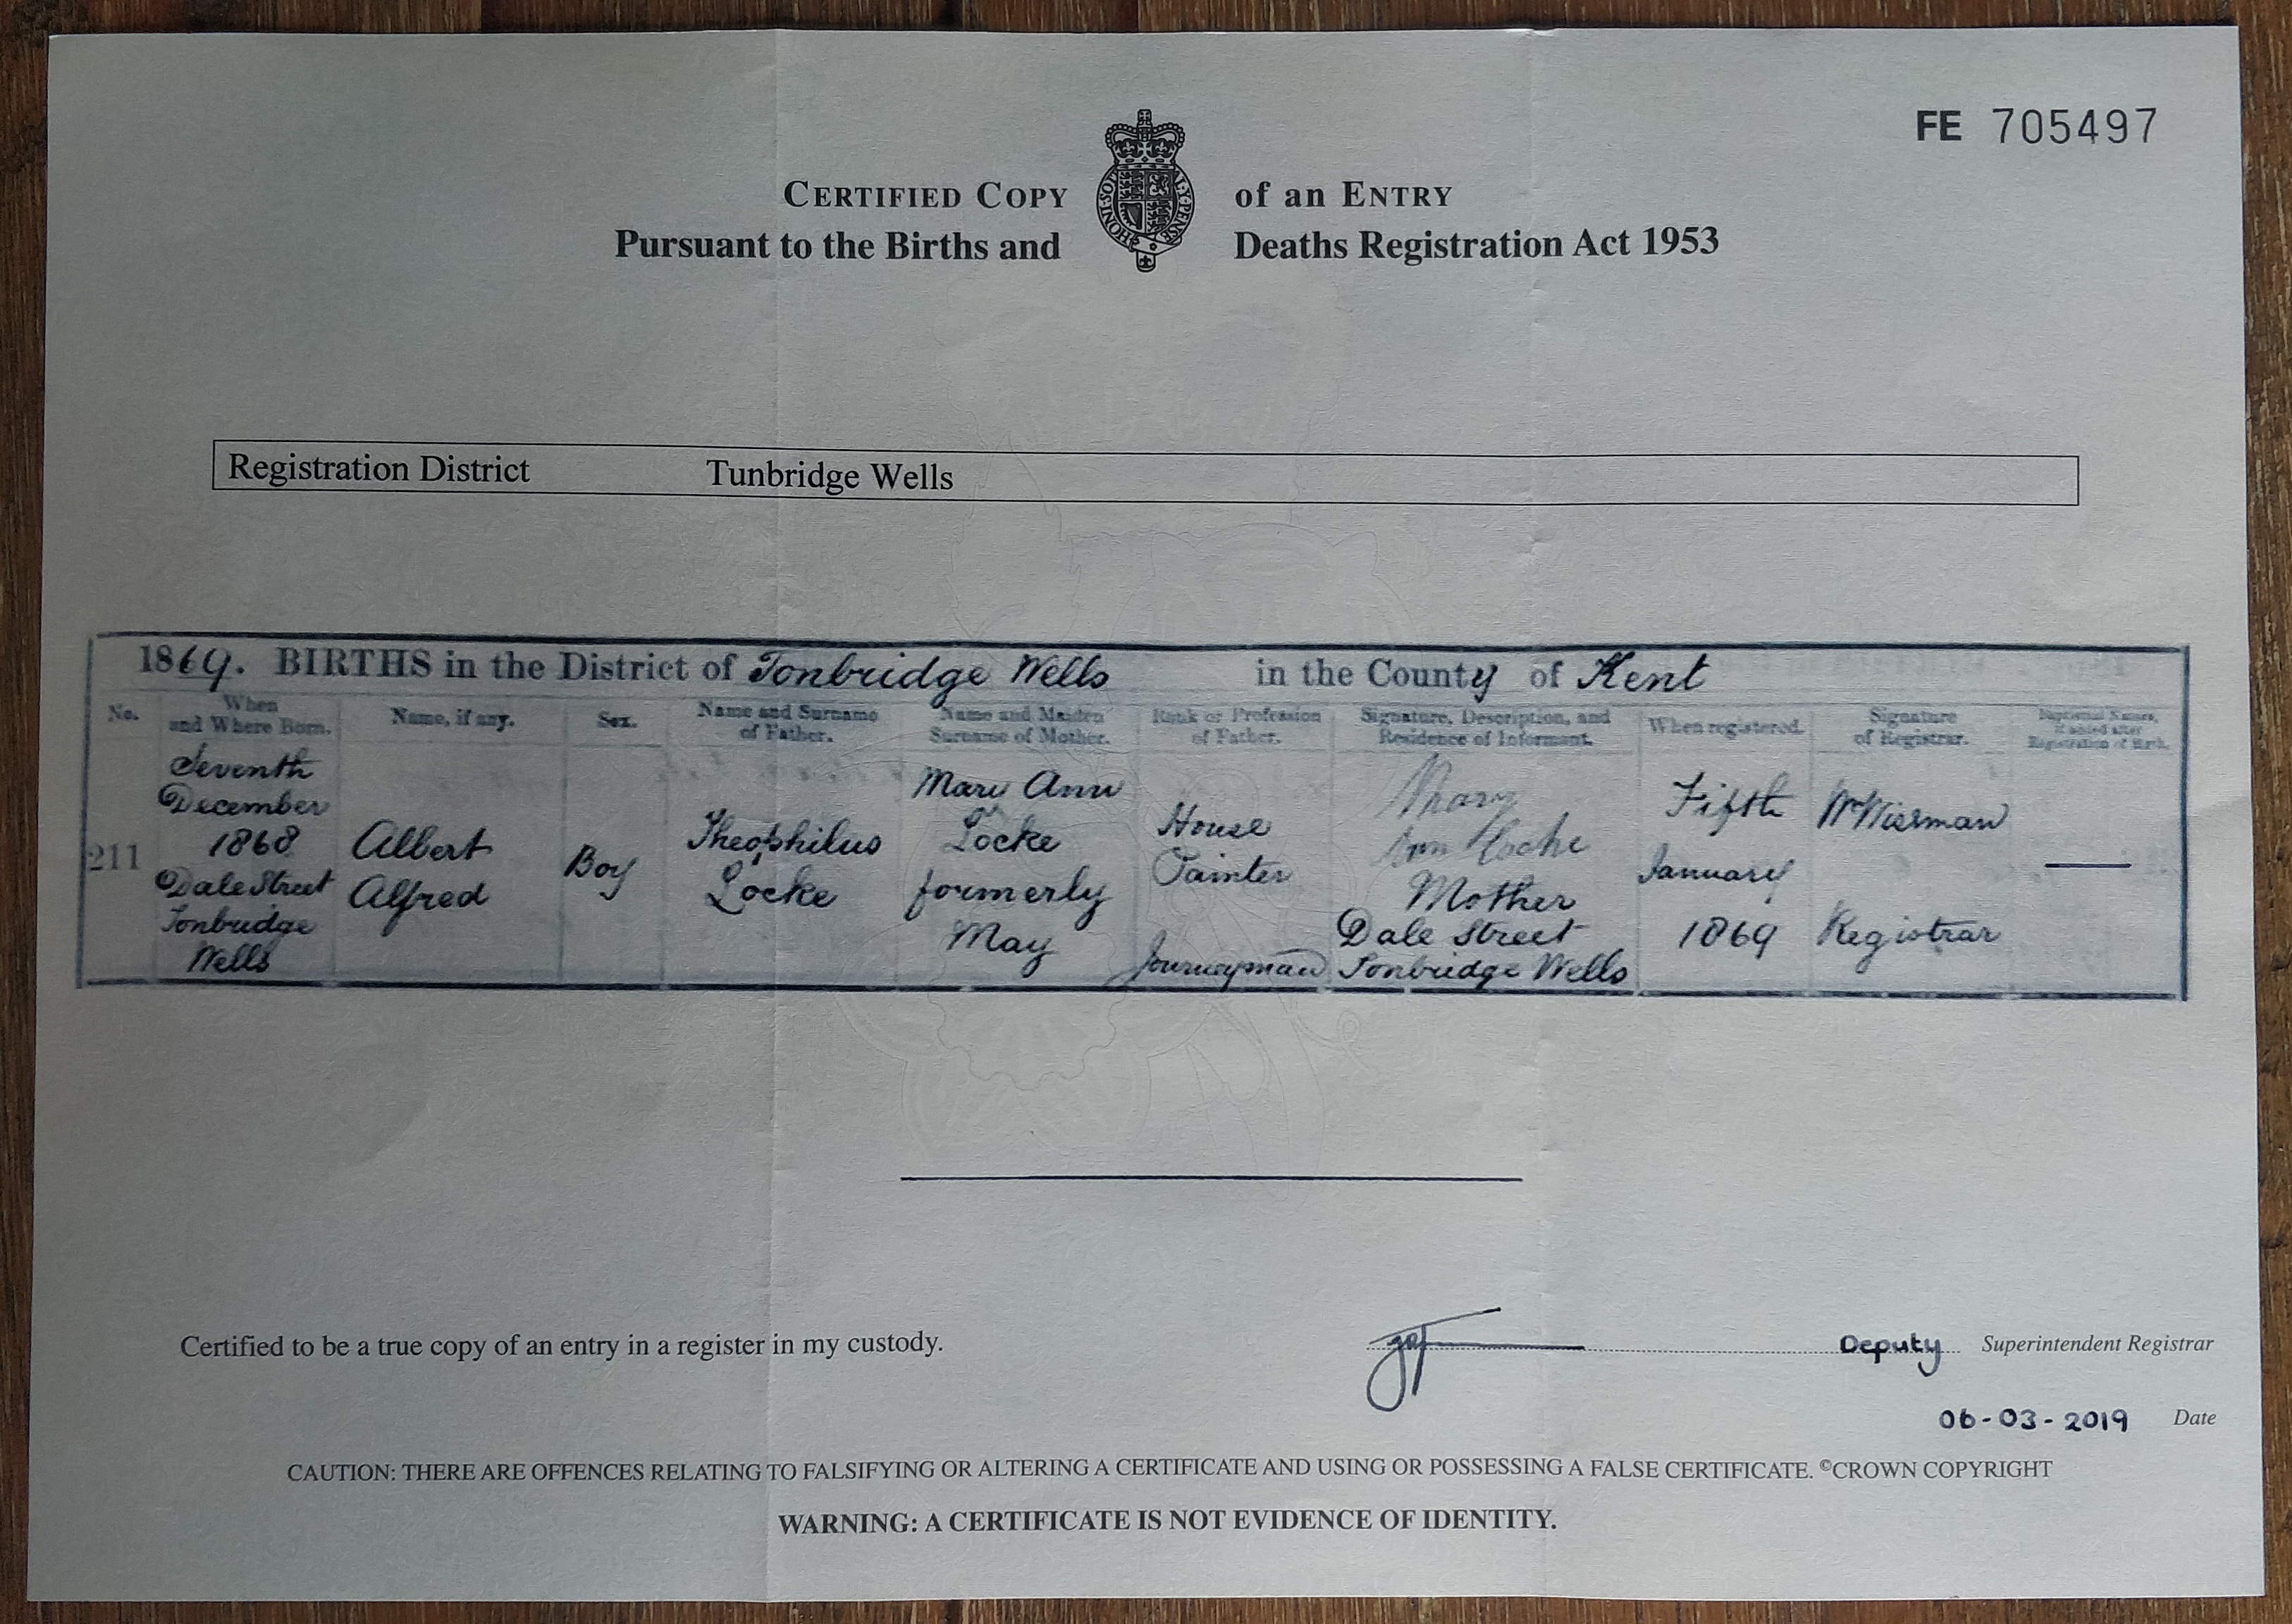 FE 705497
CERTIFIED COPY of an ENTRY
Pursuant to the Births and Deaths Registration Act 1953
HONI·SOI
AL·Y·PENSE
Registration District Tunbridge Wells
1869. BIRTHS in the District of Tonbridge Wells in the County of Kent
No.
When
and Where Born.
Name, if any.
Sex.
Name and Surname
of Father.
Name and Maiden
Surname of Mother.
Rank or Profession
of Father.
Signature, Description, and
Residence of Informant.
When registered.
Signature
of Registrar.
Baptismal Names,
if added after
Registration of Birth.
211
Seventh
December
1868
Dale Street
Tonbridge
Wells
Albert
Alfred
Boy
Theophilus
Locke
Mary Ann
Locke
formerly
May
House
Painter
Journeyman
Mary
Ann Locke
Mother
Dale Street
Tonbridge Wells
Fifth
January
1869
Registrar
Certified to be a true copy of an entry in a register in my custody.
Deputy Superintendent Registrar
06-03-2019 Date
CAUTION: THERE ARE OFFENCES RELATING TO FALSIFYING OR ALTERING A CERTIFICATE AND USING OR POSSESSING A FALSE CERTIFICATE. ©CROWN COPYRIGHT
WARNING: A CERTIFICATE IS NOT EVIDENCE OF IDENTITY.